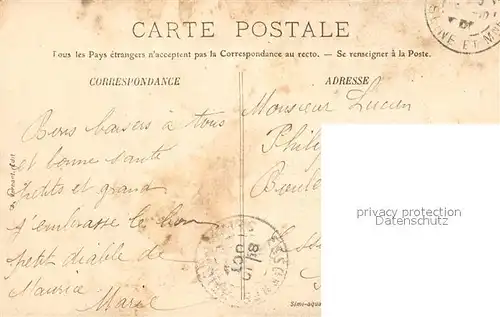 CARTE POSTALE
Tous les Pays étrangers n'acceptent pas la Correspondance au recto. — Se renseigner à la Poste.
CORRESPONDANCE
ADRESSE
Bons baisers à tous
et bonne santé
petits et grand
j'embrasse le bon
petit diable de
Maurice
Marie
Monsieur Lucien
Phili
privacy protection
www.oldthing.com
SEINE ET M